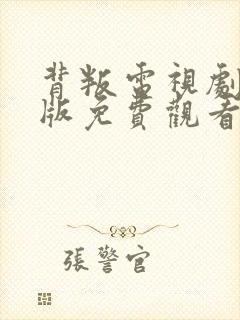 背叛雷視劇
版免費觀看
張警官